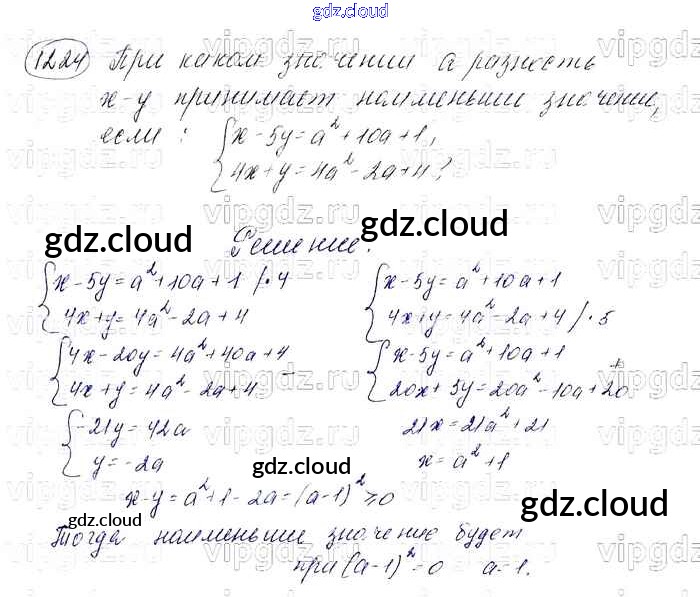 gdz.cloud
1224 При каком значении a разность
x-y принимает наименьши значение,
если: {x-5y=a²+10a+1,
4x+y=4a²-2a+4?
gdz.cloud
Решение:
{x-5y=a²+10a+1 /·4
4x+y=4a²-2a+4
{4x-20y=4a²+40a+4
4x+y=4a²-2a+4 -
{-21y=42a
y=-2a
{x-5y=a²+10a+1
4x+y=4a²-2a+4 /·5
{x-5y=a²+10a+1 +
20x+5y=20a²-10a+20
21x=21a²+21
x=a²+1
gdz.cloud
x-y=a²+1-2a=(a-1)²≥0
gdz.cloud
gdz.cloud
Тогда наименьше значение будет
при (a-1)²=0 a=1.